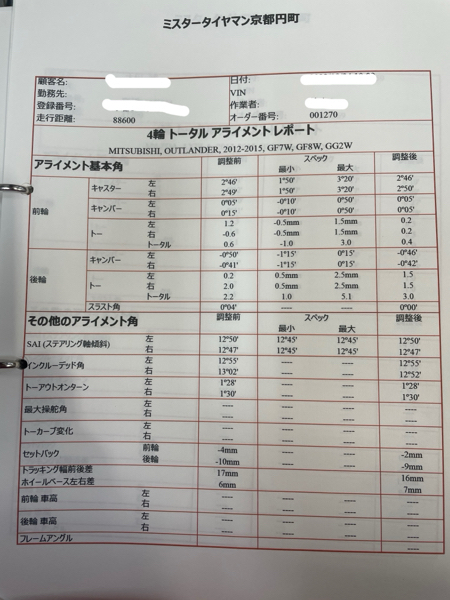 ミスタータイヤマン京都円町
顧客名: 日付:
勤務先: VIN
登録番号: 作業者:
走行距離: 88600 オーダー番号: 001270
4輪 トータル アライメント レポート
MITSUBISHI, OUTLANDER, 2012-2015, GF7W, GF8W, GG2W
アライメント基本角 調整前 スペック 調整後
最小 最大
前輪 キャスター 左 2°46' 1°50' 3°20' 2°46'
右 2°49' 1°50' 3°20' 2°50'
キャンバー 左 0°05' -0°10' 0°50' 0°05'
右 0°15' -0°10' 0°50' 0°05'
トー 左 1.2 -0.5mm 1.5mm 0.2
右 -0.6 -0.5mm 1.5mm 0.2
トータル 0.6 -1.0 3.0 0.4
後輪 キャンバー 左 -0°50' -1°15' 0°15' -0°46'
右 -0°41' -1°15' 0°15' -0°42'
トー 左 0.2 0.5mm 2.5mm 1.5
右 2.0 0.5mm 2.5mm 1.5
トータル 2.2 1.0 5.1 3.0
スラスト角 0°04' ---- ---- 0°00'
その他のアライメント角 調整前 スペック 調整後
最小 最大
SAI (ステアリング軸傾斜) 左 12°50' 12°45' 12°45' 12°50'
右 12°47' 12°45' 12°45' 12°47'
インクルーデッド角 左 12°55' 12°55'
右 13°02' 12°52'
トーアウトオンターン 左 1°28' ---- ---- 1°28'
右 1°30' ---- ---- 1°30'
最大操舵角 左 ---- ---- ---- ----
右 ---- ---- ---- ----
トーカーブ変化 左 ---- ---- ---- ----
右 ---- ---- ---- ----
セットバック 前輪 -4mm ---- ---- -2mm
後輪 -10mm ---- ---- -9mm
トラッキング幅前後差 17mm 16mm
ホイールベース左右差 6mm 7mm
前輪 車高 左 ---- ---- ---- ----
右 ---- ---- ---- ----
後輪 車高 左 ---- ---- ---- ----
右 ---- ---- ---- ----
フレームアングル ----